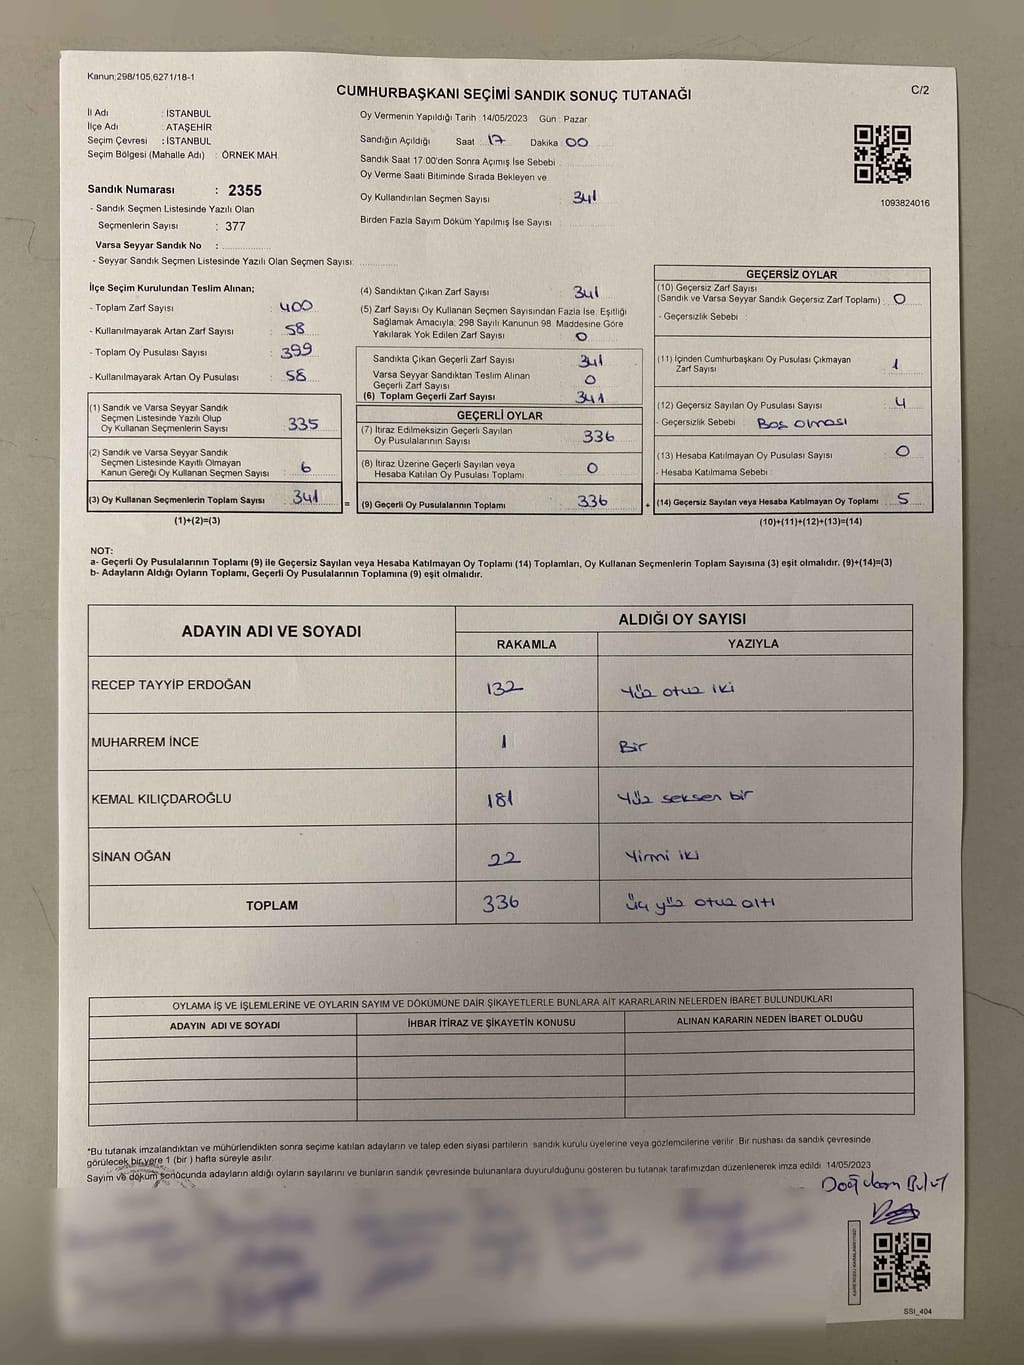 Kanun;298/105;6271/18-1
CUMHURBAŞKANI SEÇİMİ SANDIK SONUÇ TUTANAĞI
C/2
İl Adı : İSTANBUL
İlçe Adı : ATAŞEHİR
Seçim Çevresi : İSTANBUL
Seçim Bölgesi (Mahalle Adı) : ÖRNEK MAH.
Sandık Numarası : 2355
- Sandık Seçmen Listesinde Yazılı Olan
Seçmenlerin Sayısı : 377
Varsa Seyyar Sandık No :
- Seyyar Sandık Seçmen Listesinde Yazılı Olan Seçmen Sayısı:
Oy Vermenin Yapıldığı Tarih : 14/05/2023 Gün : Pazar
Sandığın Açıldığı Saat 17 Dakika 00
Sandık Saat 17:00'den Sonra Açımış İse Sebebi
Oy Verme Saati Bitiminde Sırada Bekleyen ve
Oy Kullandırılan Seçmen Sayısı : 341
Birden Fazla Sayım Döküm Yapılmış İse Sayısı :
1093824016
İlçe Seçim Kurulundan Teslim Alınan;
- Toplam Zarf Sayısı : 400
- Kullanılmayarak Artan Zarf Sayısı : 58
- Toplam Oy Pusulası Sayısı : 399
- Kullanılmayarak Artan Oy Pusulası : 58
(1) Sandık ve Varsa Seyyar Sandık
Seçmen Listesinde Yazılı Olup
Oy Kullanan Seçmenlerin Sayısı : 335
(2) Sandık ve Varsa Seyyar Sandık
Seçmen Listesinde Kayıtlı Olmayan
Kanun Gereği Oy Kullanan Seçmen Sayısı : 6
(3) Oy Kullanan Seçmenlerin Toplam Sayısı : 341
(1)+(2)=(3)
=
(4) Sandıktan Çıkan Zarf Sayısı : 341
(5) Zarf Sayısı Oy Kullanan Seçmen Sayısından Fazla İse, Eşitliği
Sağlamak Amacıyla, 298 Sayılı Kanunun 98. Maddesine Göre
Yakılarak Yok Edilen Zarf Sayısı : 0
Sandıkta Çıkan Geçerli Zarf Sayısı : 341
Varsa Seyyar Sandıktan Teslim Alınan
Geçerli Zarf Sayısı : 0
(6) Toplam Geçerli Zarf Sayısı : 341
GEÇERLİ OYLAR
(7) İtiraz Edilmeksizin Geçerli Sayılan
Oy Pusulalarının Sayısı : 336
(8) İtiraz Üzerine Geçerli Sayılan veya
Hesaba Katılan Oy Pusulası Toplamı : 0
(9) Geçerli Oy Pusulalarının Toplamı : 336
+
GEÇERSİZ OYLAR
(10) Geçersiz Zarf Sayısı
(Sandık ve Varsa Seyyar Sandık Geçersiz Zarf Toplamı) : 0
- Geçersizlik Sebebi :
(11) İçinden Cumhurbaşkanı Oy Pusulası Çıkmayan
Zarf Sayısı : 1
(12) Geçersiz Sayılan Oy Pusulası Sayısı : 4
- Geçersizlik Sebebi : Boş olması
(13) Hesaba Katılmayan Oy Pusulası Sayısı : 0
- Hesaba Katılmama Sebebi :
(14) Geçersiz Sayılan veya Hesaba Katılmayan Oy Toplamı : 5
(10)+(11)+(12)+(13)=(14)
NOT:
a- Geçerli Oy Pusulalarının Toplamı (9) ile Geçersiz Sayılan veya Hesaba Katılmayan Oy Toplamı (14) Toplamları, Oy Kullanan Seçmenlerin Toplam Sayısına (3) eşit olmalıdır. (9)+(14)=(3)
b- Adayların Aldığı Oyların Toplamı, Geçerli Oy Pusulalarının Toplamına (9) eşit olmalıdır.
ADAYIN ADI VE SOYADI
ALDIĞI OY SAYISI
RAKAMLA YAZIYLA
RECEP TAYYİP ERDOĞAN 132 Yüz otuz iki
MUHARREM İNCE 1 Bir
KEMAL KILIÇDAROĞLU 181 Yüz seksen bir
SİNAN OĞAN 22 Yirmi iki
TOPLAM 336 Üç yüz otuz altı
OYLAMA İŞ VE İŞLEMLERİNE VE OYLARIN SAYIM VE DÖKÜMÜNE DAİR ŞİKAYETLERLE BUNLARA AİT KARARLARIN NELERDEN İBARET BULUNDUKLARI
ADAYIN ADI VE SOYADI İHBAR İTİRAZ VE ŞİKAYETİN KONUSU ALINAN KARARIN NEDEN İBARET OLDUĞU
*Bu tutanak imzalandıktan ve mühürlendikten sonra seçime katılan adayların ve talep eden siyasi partilerin sandık kurulu üyelerine veya gözlemcilerine verilir. Bir nüshası da sandık çevresinde
görülecek bir yere 1 (bir ) hafta süreyle asılır.
Sayım ve döküm sonucunda adayların aldığı oyların sayılarını ve bunların sandık çevresinde bulunanlara duyurulduğunu gösteren bu tutanak tarafımızdan düzenlenerek imza edildi. 14/05/2023
Bulut
SSI_404